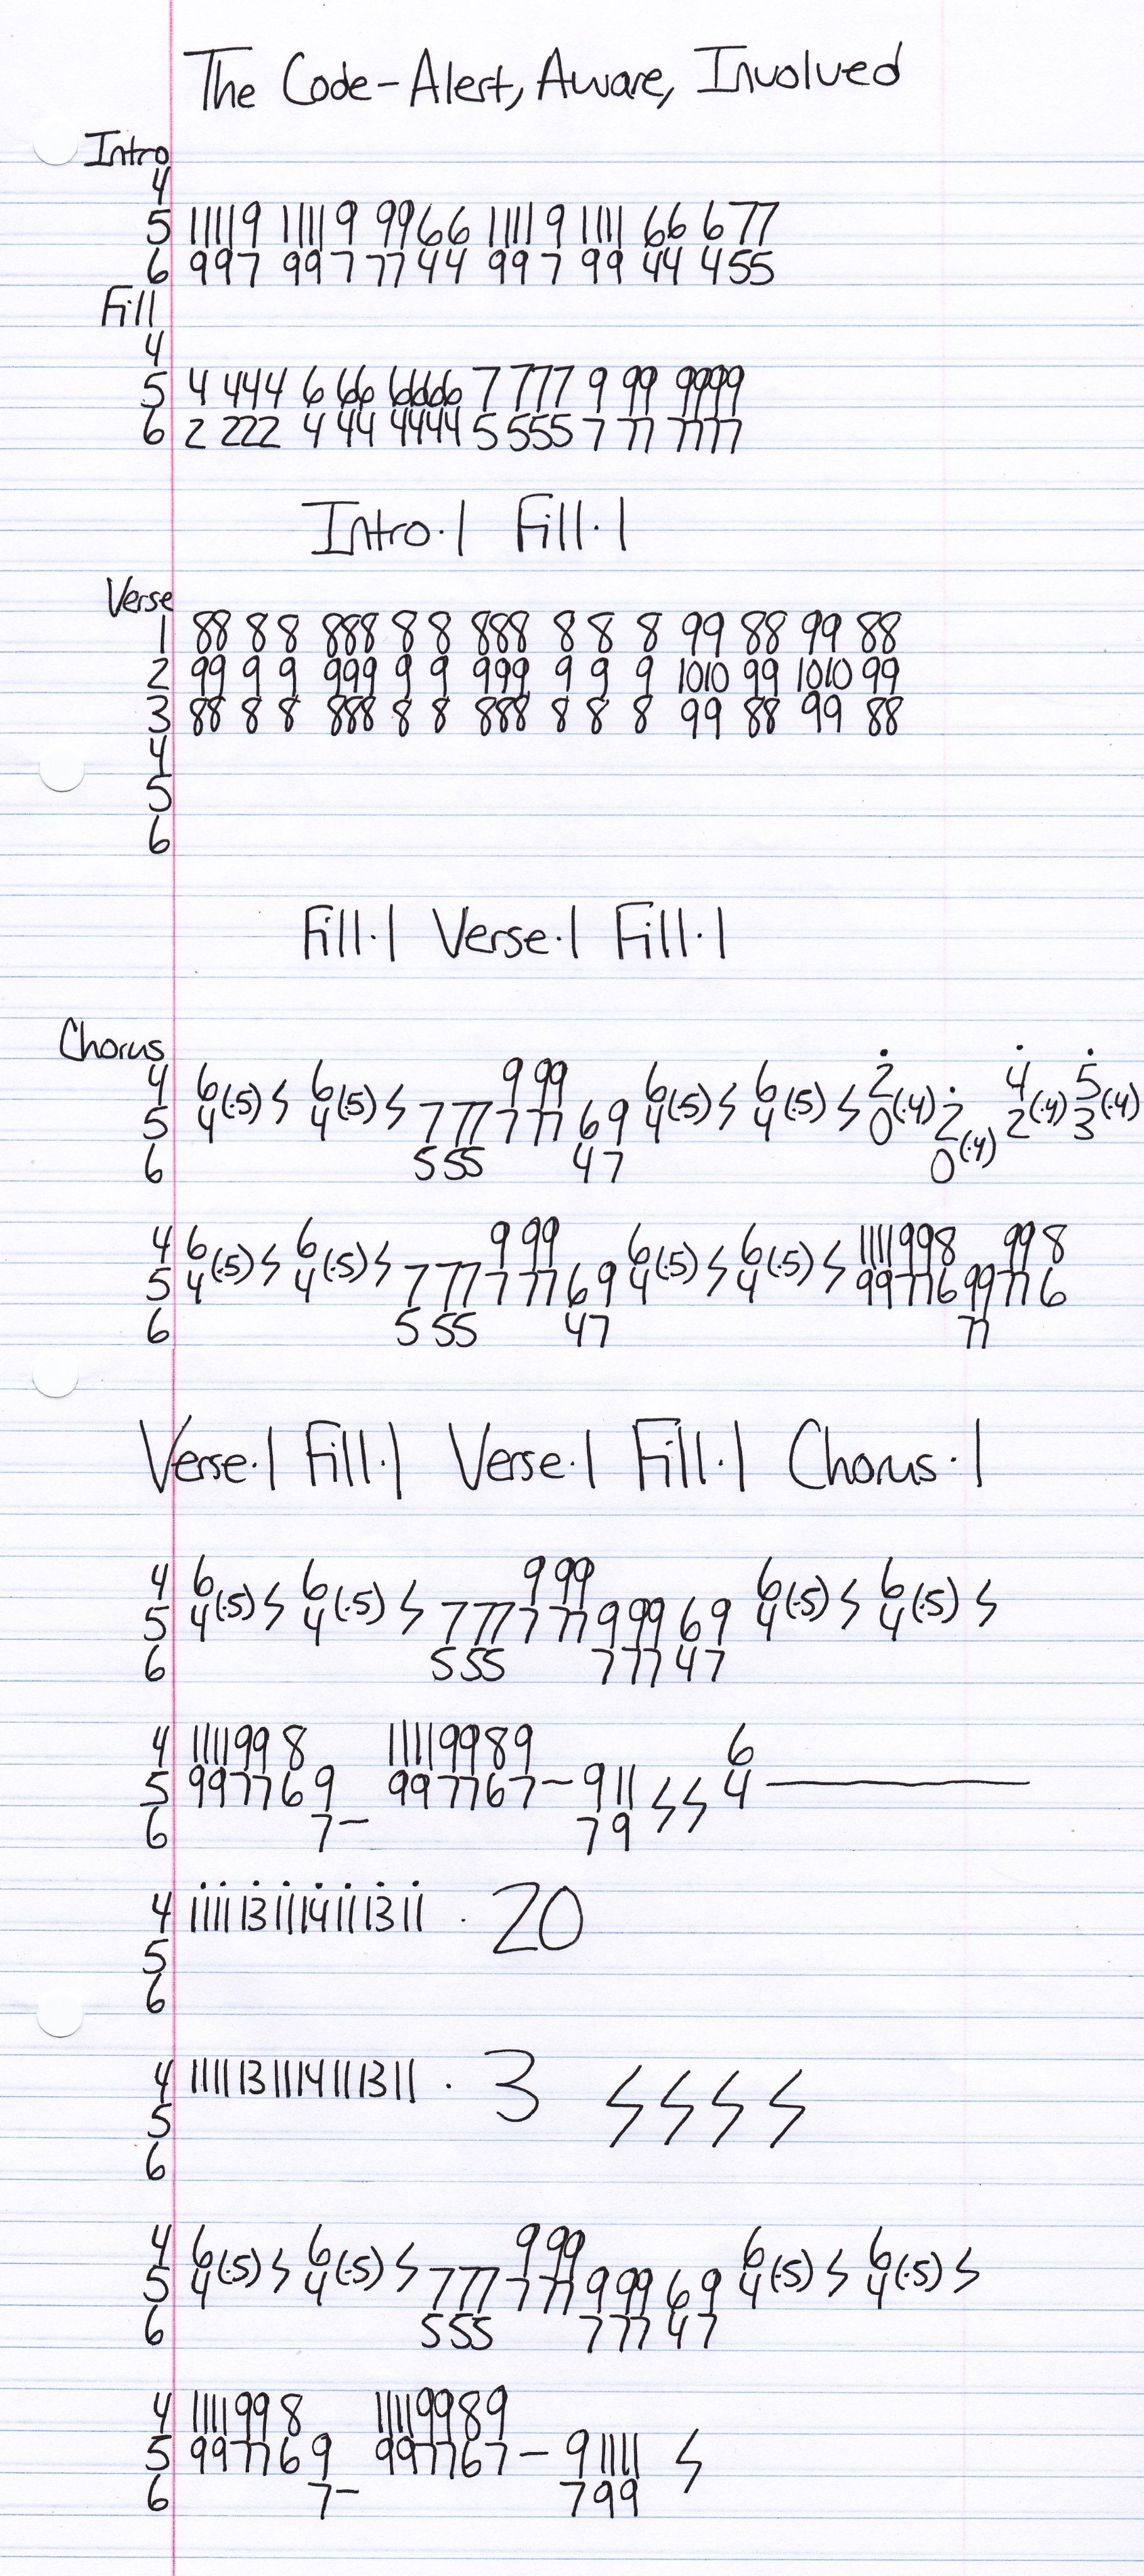 The Code-Alert, Aware, Involved
Intro
4
5 11119 11119 9966 11119 1111 66 677
6 997 997 7744 997 99 44 455
Fill
4
5 4 444 6 66 6666 7 777 9 99 9999
6 2 222 4 44 4444 5 555 7 77 7777
Intro·1 Fill·1
Verse
1 88 8 8 888 8 8 888 8 8 8 99 88 99 88
2 99 9 9 999 9 9 999 9 9 9 1010 99 1010 99
3 88 8 8 888 8 8 888 8 8 8 99 88 99 88
4
5
6
Fill·1 Verse·1 Fill·1
Chorus
4 6 6 9 99 6 6 2 4 5
5 4(·5) 4(·5) 7 77 7 77 6 9 4(·5) 4(·5) 0(·4) 2 2(·4) 3(·4)
6 5 55 4 7 0(·4)
4 6 6 9 99 6 6 1111998 998
5 4(·5) 4(·5) 7 77 7 77 6 9 4(·5) 4(·5) 99776 99 77 6
6 5 55 47 77
Verse·1 Fill·1 Verse·1 Fill·1 Chorus·1
4 6 6 9 99 6 6
5 4(·5) 4(·5) 7 77 7 77 9 99 6 9 4(·5) 4(·5)
6 5 55 7 77 4 7
4 1111998 11119989 6
5 99776 9 997767- 9 11 4
6 7- 7 9
4 11111311114111311 · 20
5
6
4 11111311114111311 · 3
5
6
4 6 6 9 99 6 6
5 4(·5) 4(·5) 7 77 7 77 9 99 6 9 4(·5) 4(·5)
6 5 55 7 77 4 7
4 1111998 11119989
5 99776 9 997767- 9 1111
6 7- 799